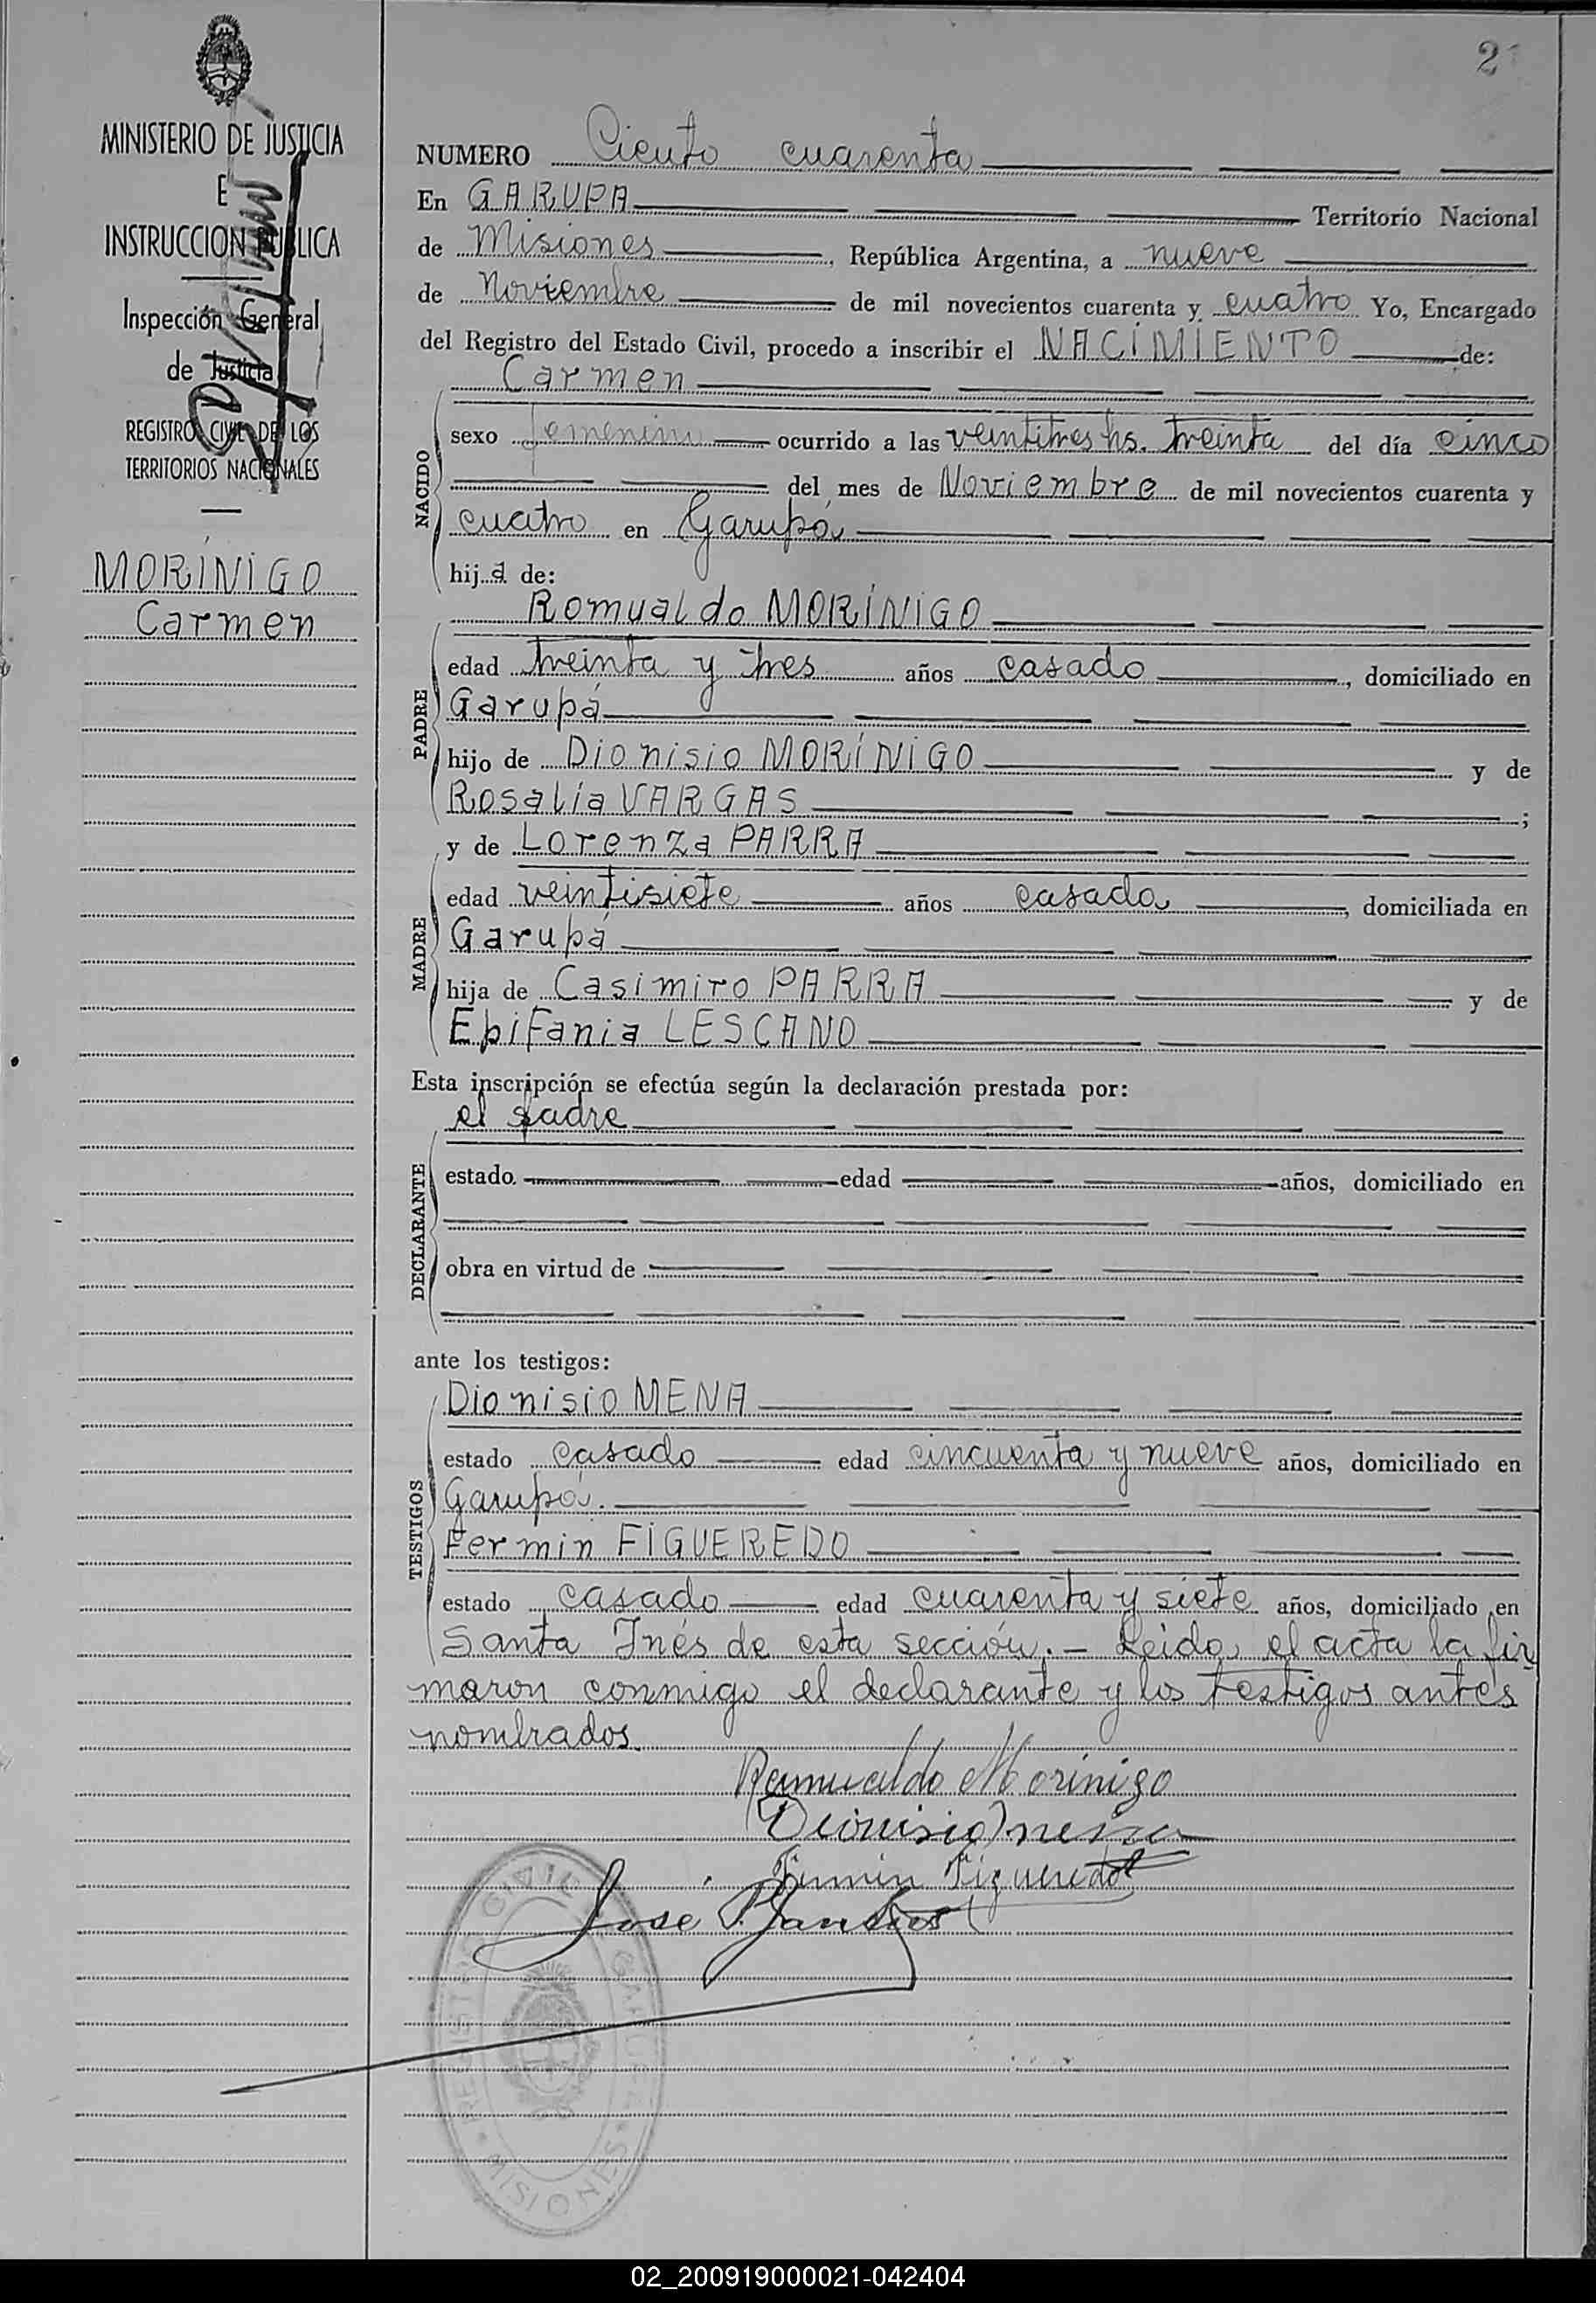 21
MINISTERIO DE JUSTICIA
E
INSTRUCCION PUBLICA
Inspección General
de Justicia
REGISTRO CIVIL DE LOS
TERRITORIOS NACIONALES
MORÍNIGO
Carmen
NUMERO Ciento cuarenta
En GARUPA Territorio Nacional
de Misiones, República Argentina, a nueve
de Noviembre de mil novecientos cuarenta y cuatro Yo, Encargado
del Registro del Estado Civil, procedo a inscribir el NACIMIENTO de:
Carmen
NACIDO
sexo femenino ocurrido a las veintitres hs. treinta del día cinco
del mes de Noviembre de mil novecientos cuarenta y
cuatro en Garupá
hija de:
Romualdo MORÍNIGO
PADRE
edad treinta y tres años casado, domiciliado en
Garupá
hijo de Dionisio MORÍNIGO y de
Rosalía VARGAS;
y de Lorenza PARRA
MADRE
edad veintisiete años casada, domiciliada en
Garupá
hija de Casimiro PARRA y de
Epifania LESCANO
Esta inscripción se efectúa según la declaración prestada por:
el padre
DECLARANTE
estado edad años, domiciliado en
obra en virtud de
ante los testigos:
Dionisio MENA
TESTIGOS
estado casado edad cincuenta y nueve años, domiciliado en
Garupá.
Fermin FIGUEREDO
estado casado edad cuarenta y siete años, domiciliado en
Santa Inés de esta sección.- Leida el acta la fir
maron conmigo el declarante y los testigos antes
nombrados.
Romualdo Morínigo
Dionisio Mena
Fermin Figueredo
Jose P.
REGISTRO CIVIL GARUPA
MISIONES
02_200919000021-042404